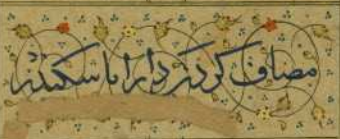 مصاف کردن دارا با سکندر